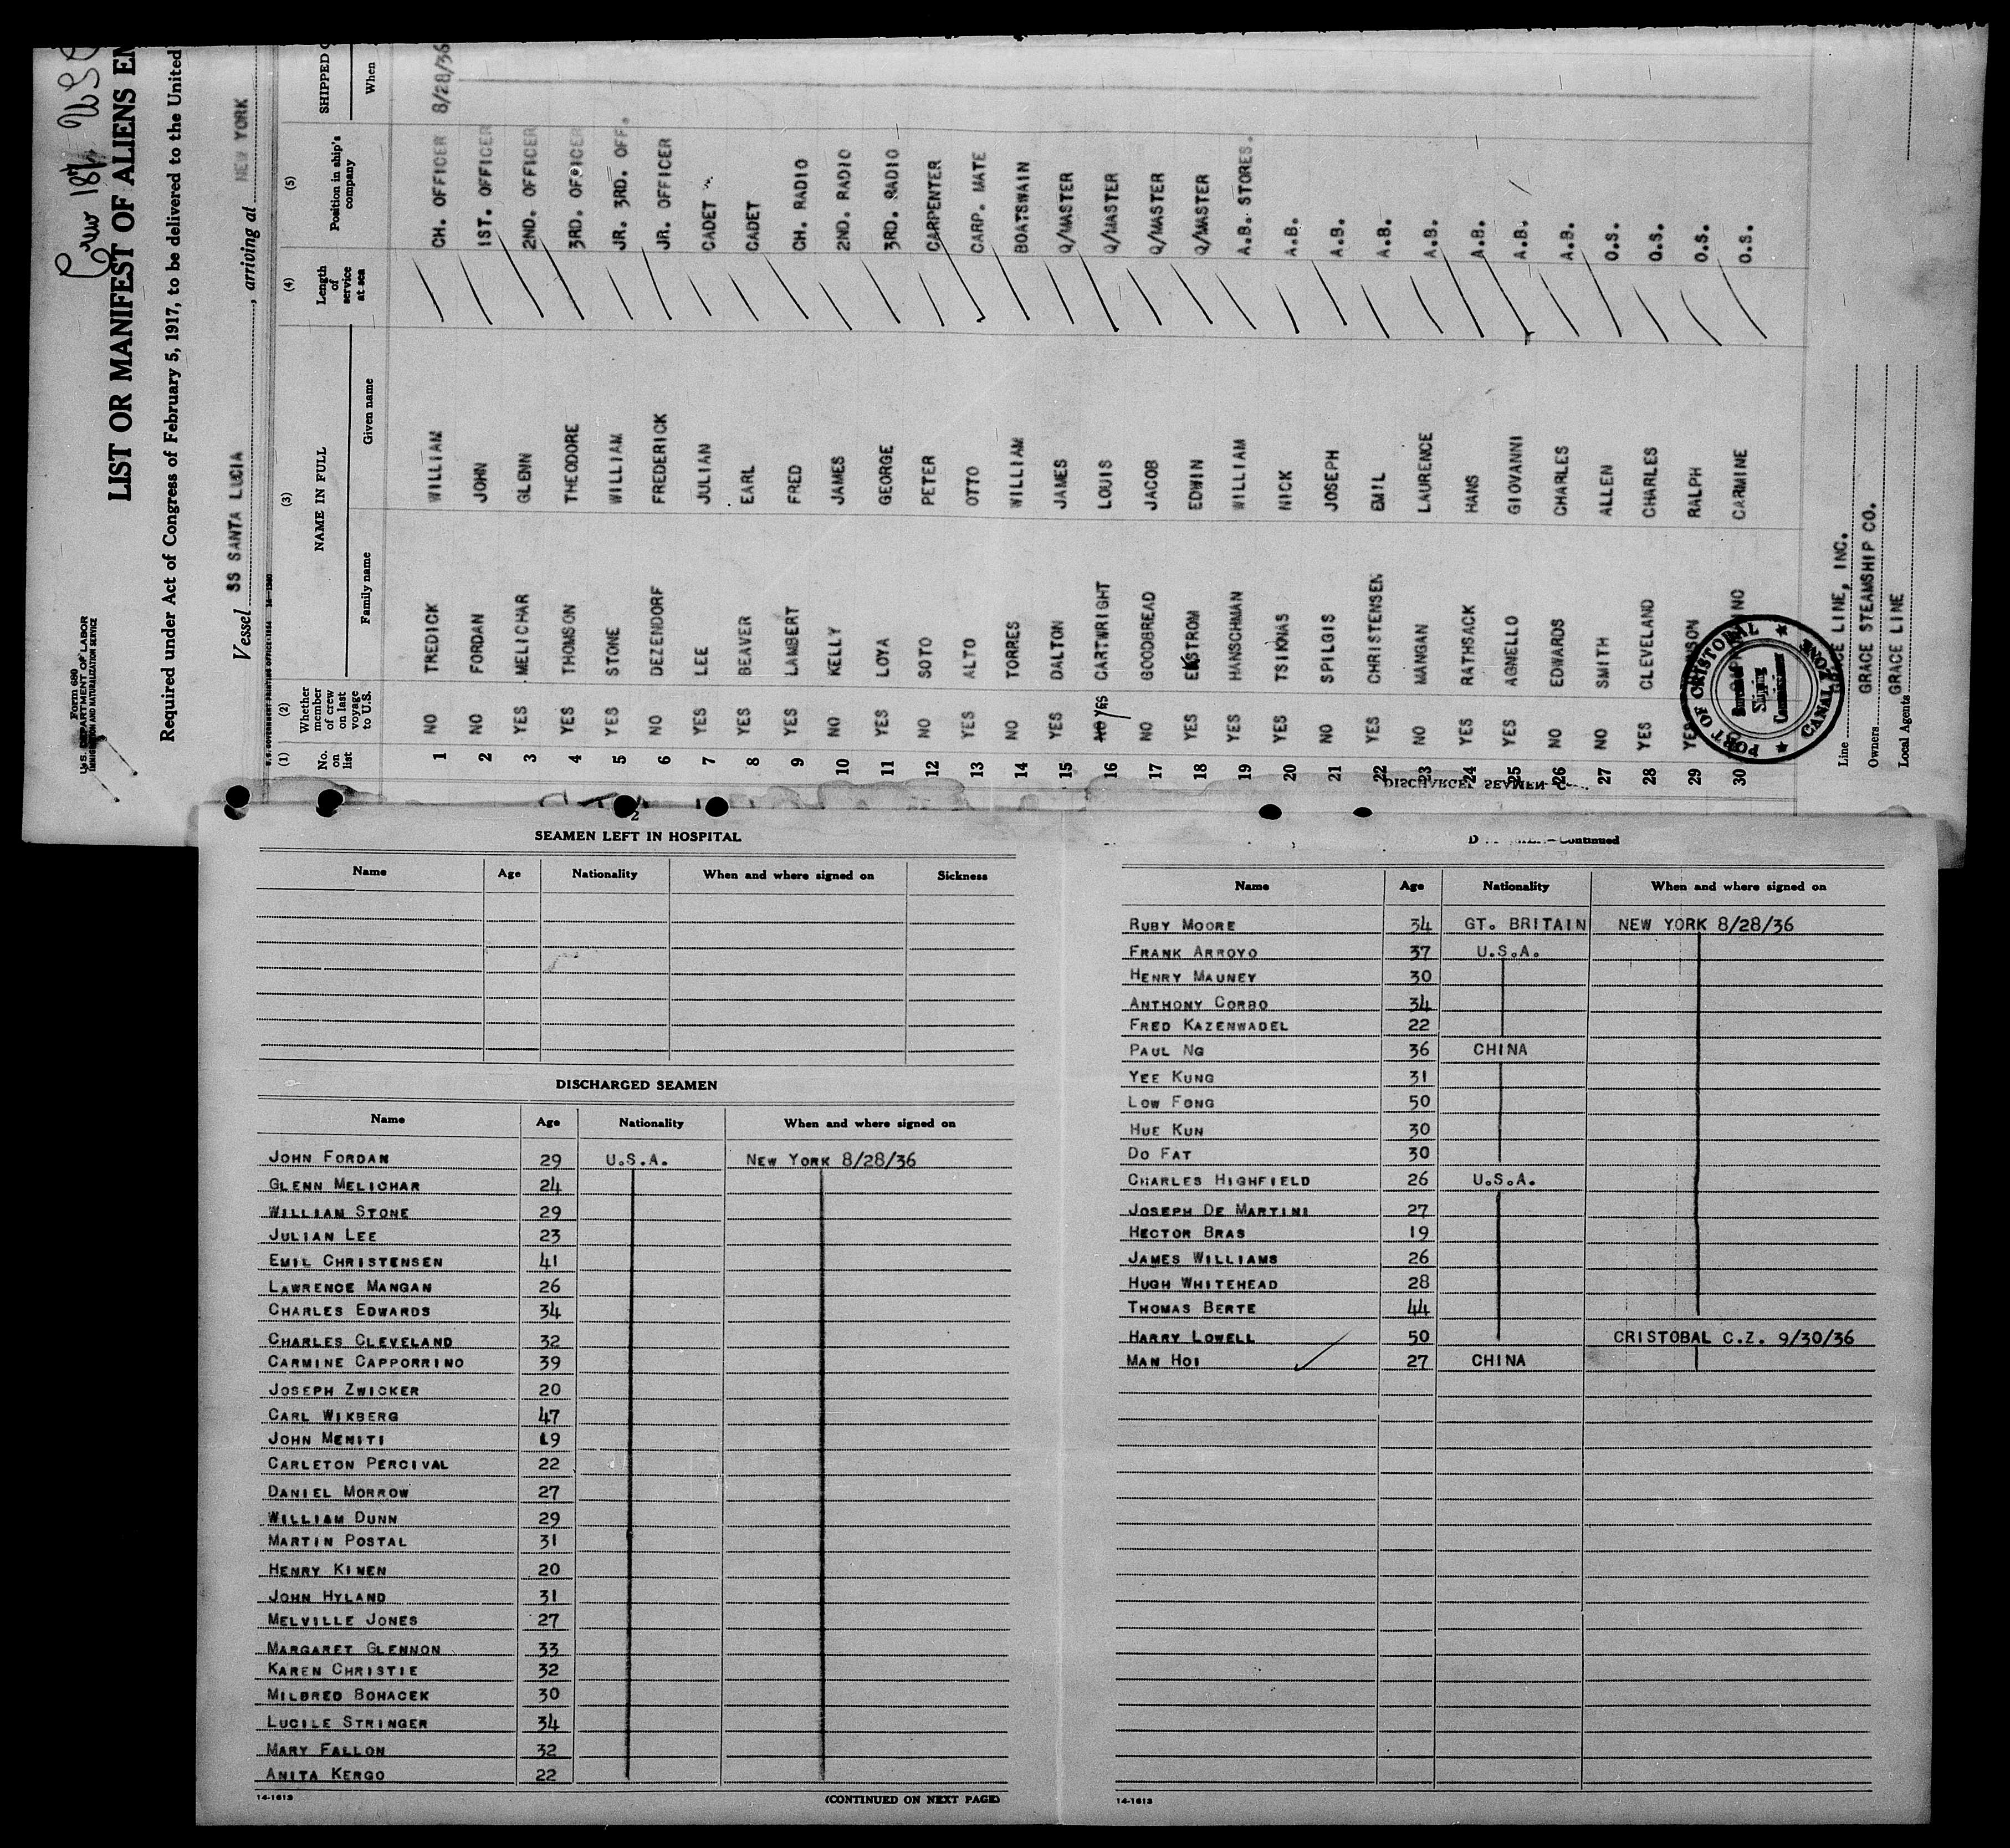 Form 680
U.S. DEPARTMENT OF LABOR
IMMIGRATION AND NATURALIZATION SERVICE
LIST OR MANIFEST OF ALIENS EM
Required under Act of Congress of February 5, 1917, to be delivered to the United
Vessel SS SANTA LUCIA, arriving at NEW YORK
(1) (2) (3) (4) (5)
No. on list Whether member of crew on last voyage to U.S. NAME IN FULL Family name Given name Length of service at sea Position in ship's company SHIPPED When
1 NO TREDICK WILLIAM CH. OFFICER 8/28/36
2 NO FORDAN JOHN 1ST. OFFICER
3 YES MELICHAR GLENN 2ND. OFFICER
4 YES THOMSON THEODORE 3RD. OFOICER
5 YES STONE WILLIAM JR. 3RD. OFF.
6 NO DEZENDORF FREDERICK JR. OFFICER
7 YES LEE JULIAN CADET
8 YES BEAVER EARL CADET
9 YES LAMBERT FRED CH. RADIO
10 NO KELLY JAMES 2ND. RADIO
11 YES LOYA GEORGE 3RD. RADIO
12 NO SOTO PETER CARPENTER
13 YES ALTO OTTO CARP. MATE
14 NO TORRES WILLIAM BOATSWAIN
15 YES DALTON JAMES Q/MASTER
16 NO YES CARTWRIGHT LOUIS Q/MASTER
17 NO GOODBREAD JACOB Q/MASTER
18 YES EKSTROM EDWIN Q/MASTER
19 YES HANSCHMAN WILLIAM A.B. STORES.
20 YES TSIKNAS NICK A.B.
21 NO SPILGIS JOSEPH A.B.
22 YES CHRISTENSEN EMIL A.B.
23 NO MANGAN LAURENCE A.B.
24 YES RATHSACK HANS A.B.
25 YES AGNELLO GIOVANNI A.B.
26 NO EDWARDS CHARLES A.B.
27 NO SMITH ALLEN O.S.
28 YES CLEVELAND CHARLES O.S.
29 YES RALPH O.S.
30 CARMINE O.S.
PORT OF CRISTOBAL
CANAL ZONE
Shipping Commissioner
Line GRACE LINE, INC.
Owners GRACE STEAMSHIP CO.
Local Agents GRACE LINE
2
SEAMEN LEFT IN HOSPITAL
Name Age Nationality When and where signed on Sickness
DISCHARGED SEAMEN
Name Age Nationality When and where signed on
JOHN FORDAN 29 U.S.A. NEW YORK 8/28/36
GLENN MELICHAR 24
WILLIAM STONE 29
JULIAN LEE 23
EMIL CHRISTENSEN 41
LAWRENCE MANGAN 26
CHARLES EDWARDS 34
CHARLES CLEVELAND 32
CARMINE CAPPORRINO 39
JOSEPH ZWICKER 20
CARL WIKBERG 47
JOHN MENITI 19
CARLETON PERCIVAL 22
DANIEL MORROW 27
WILLIAM DUNN 29
MARTIN POSTAL 31
HENRY KINEN 20
JOHN HYLAND 31
MELVILLE JONES 27
MARGARET GLENNON 33
KAREN CHRISTIE 32
MILDRED BOHACEK 30
LUCILE STRINGER 34
MARY FALLON 32
ANITA KERGO 22
14-1613 (CONTINUED ON NEXT PAGE)
—Continued
Name Age Nationality When and where signed on
RUBY MOORE 34 GT. BRITAIN NEW YORK 8/28/36
FRANK ARROYO 37 U.S.A.
HENRY MAUNEY 30
ANTHONY CORBO 34
FRED KAZENWADEL 22
PAUL NG 36 CHINA
YEE KUNG 31
LOW FONG 50
HUE KUN 30
DO FAT 30
CHARLES HIGHFIELD 26 U.S.A.
JOSEPH DE MARTINI 27
HECTOR BRAS 19
JAMES WILLIAMS 26
HUGH WHITEHEAD 28
THOMAS BERTE 44
HARRY LOWELL 50 CRISTOBAL C.Z. 9/30/36
MAN HOI 27 CHINA
14-1613